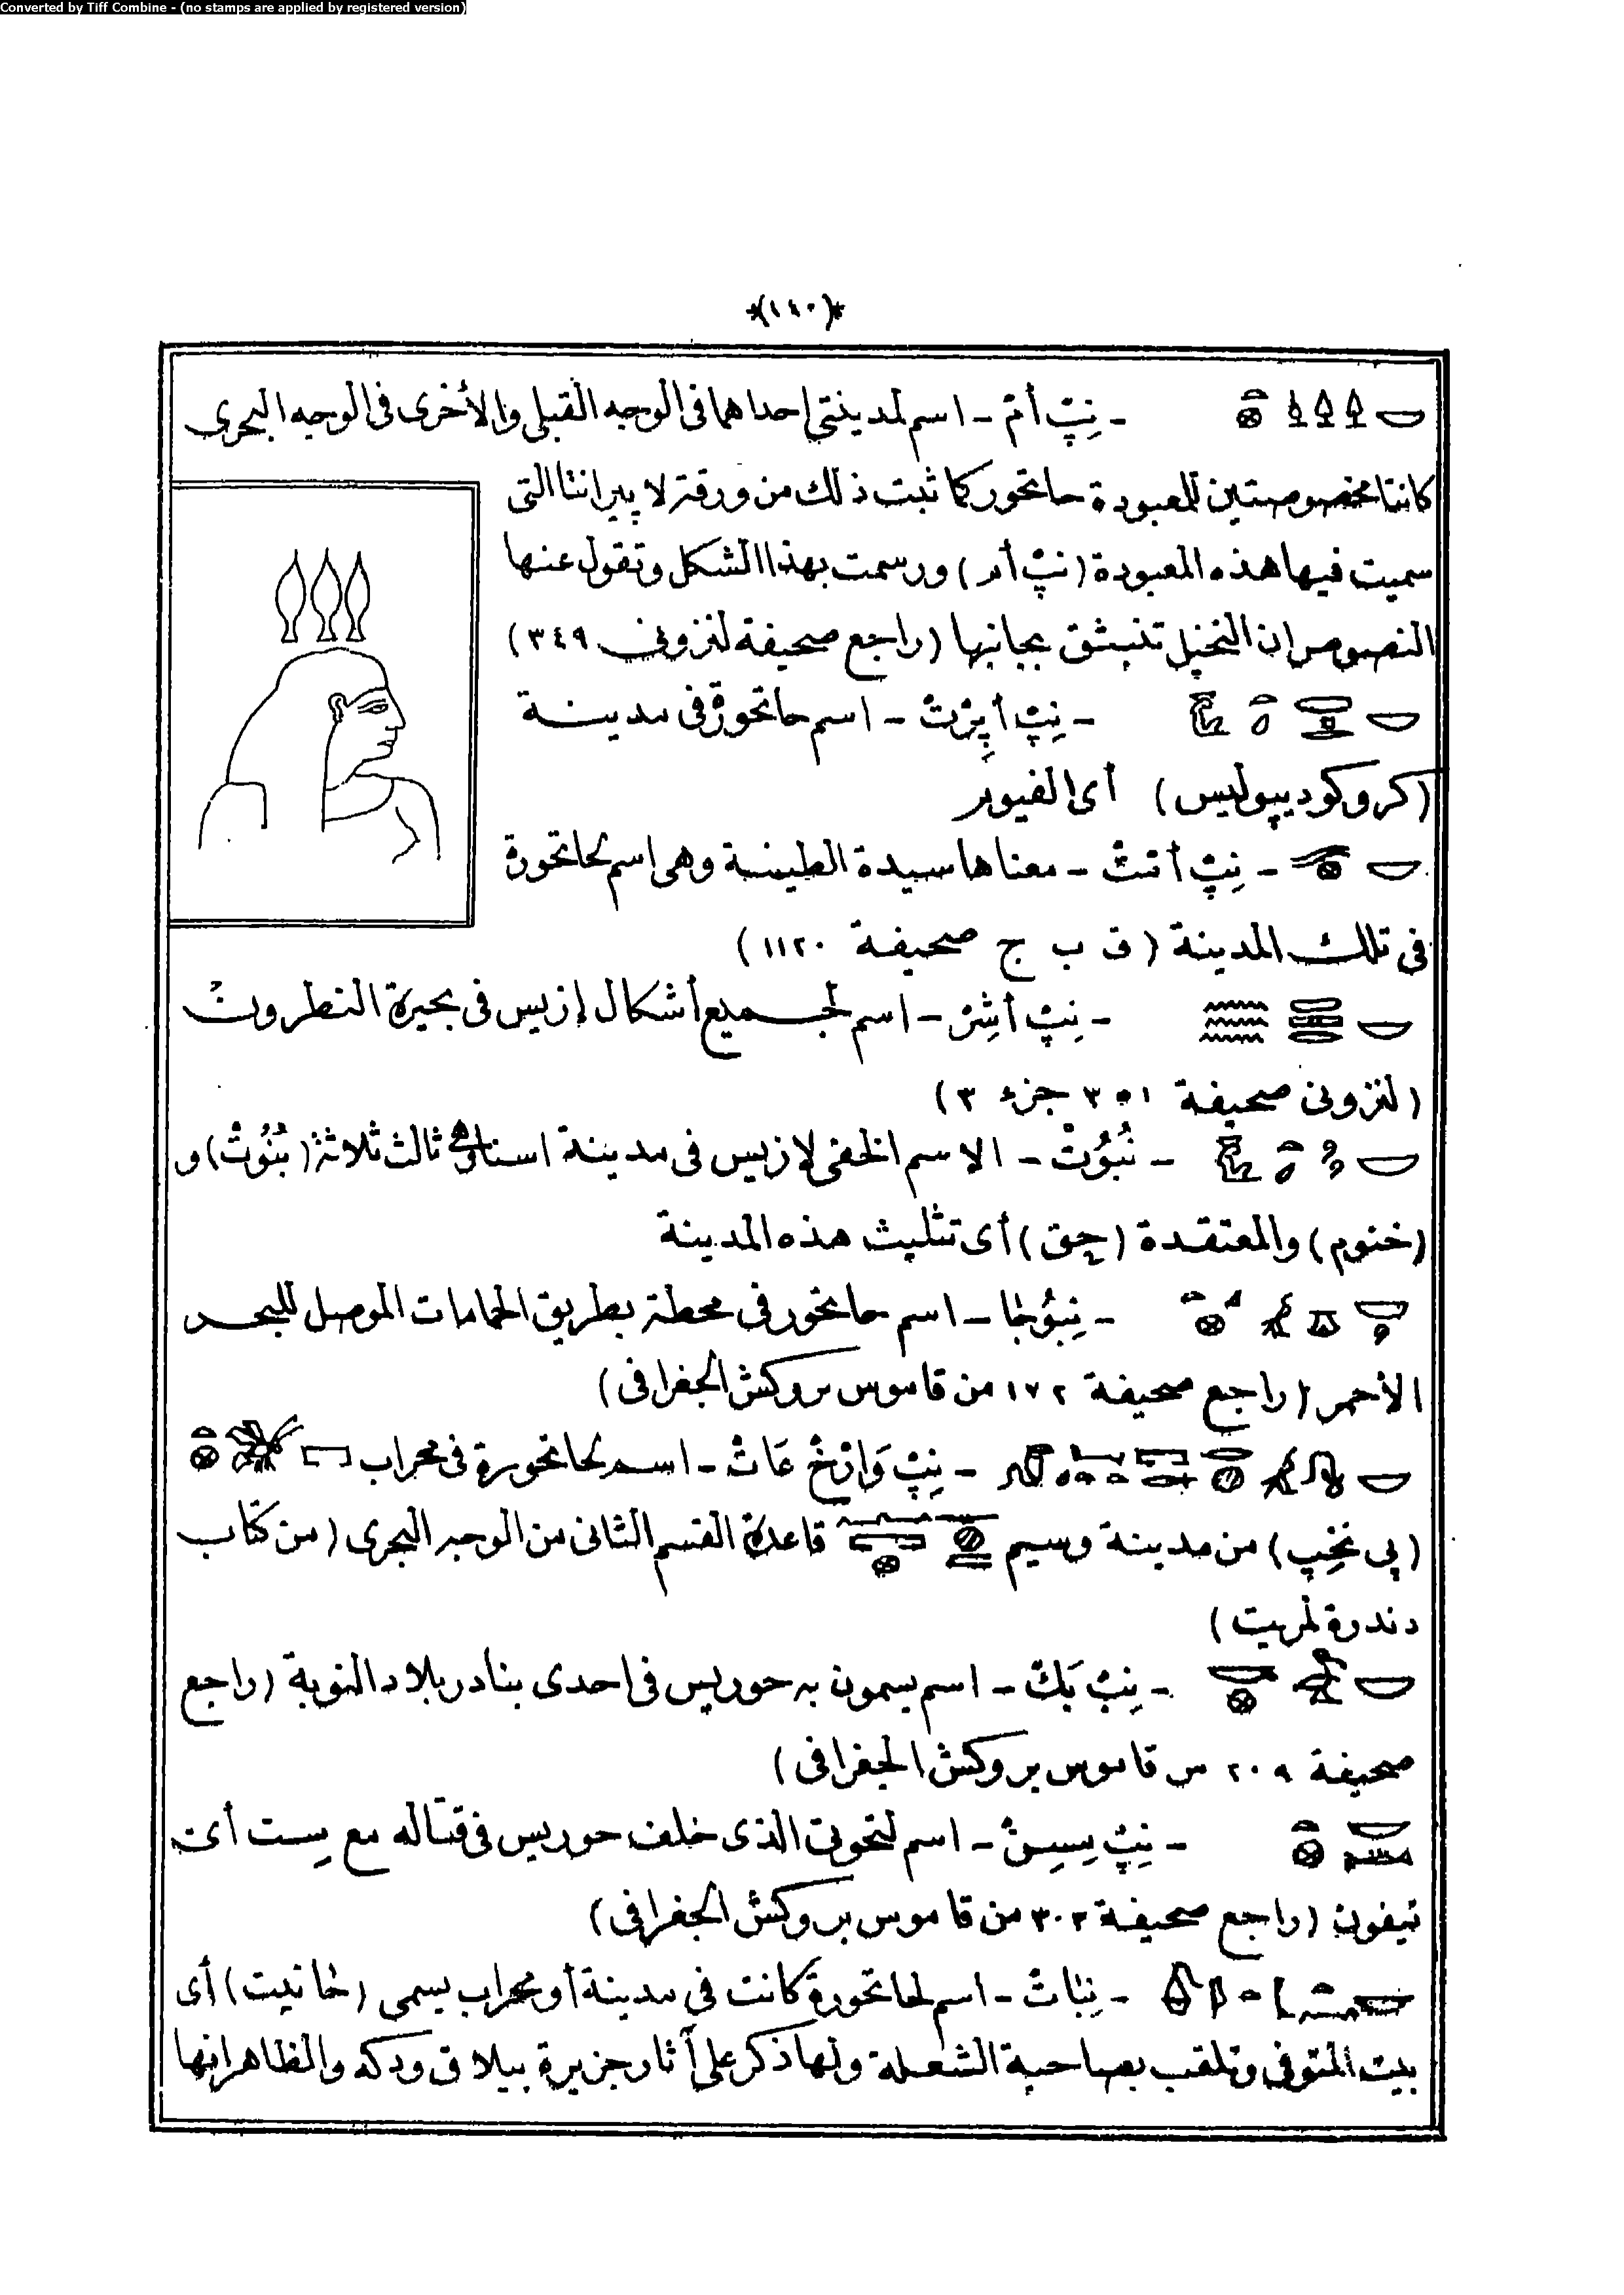 Converted by Tiff Combine - (no stamps are applied by registered version)
*(١٤٠)*
- نِبْ أمْ - اسم لمدينتى إحداهما فى الوجه القبلى والأخرى فى الوجه البحرى
كانتا مخصوصتين للعبودة حاتحور كما ثبت ذلك من ورقة لا بيرانتا التى
سميت فيها هذه المعبودة (نبْ أم) ورسمت بهذا الشكل وتقول عنها
النصوص ان النخيل تنبثق بجانبها (راجع صحيفة لنزونى ٣٤٩)
- نِبْ أپِرْتْ - اسم حاتحورة فى مدينة
(كروكوديپوليس) أى الفيوم
- نِبْ أتتْ - معناها سيدة الطينة وهى اسم لحاتحورة
فى تلك المدينة (ق ب ج صحيفة ١١٢٠)
- نِبْ أشِرْ - اسم لجميع أشكال إزيس فى بحيرة النطرون
(لنزونى صحيفة ٣٥١ جزء ٣)
- نُبُوُتْ - الاسم الخفى لازيس فى مدينة اسنا وهى ثالث ثلاثة (بُنُوُتْ) و
(خنوم) والمعتقدة (حِق) أى تثليث هذه المدينة
- نِبُوُخا - اسم حاتحور فى محطة بطريق الحمامات الموصل للبحر
الأحمر (راجع صحيفة ١٧٢ من قاموس بروكش الجغرافى)
- نِبْ وَارْخْ عَاتْ - اسم لحاتحورة فى محراب
(پى نخِب) من مدينة وسيم قاعدة القسم الثانى من الوجه البحرى (من كتاب
دندرة لمريت)
- نِبْ بَكْ - اسم يسمون به حوريس فى إحدى بنادر بلاد النوبة (راجع
صحيفة ٢٠٩ من قاموس بروكش الجغرافى)
- نِبْ سِسِنْ - اسم لتحوتى الذى خلف حوريس فى قتاله مع سِت أى
تيفون (راجع صحيفة ٣٠٣ من قاموس بروكش الجغرافى)
- نِبَاتْ - اسم لحاتحورة كانت فى مدينة أو محراب يسمى (خانيت) أى
بيت المتوفى وتلقب بصاحبة الشعلة ولها ذكر على آثار جزيرة بيلاق ودكه والظاهر انها